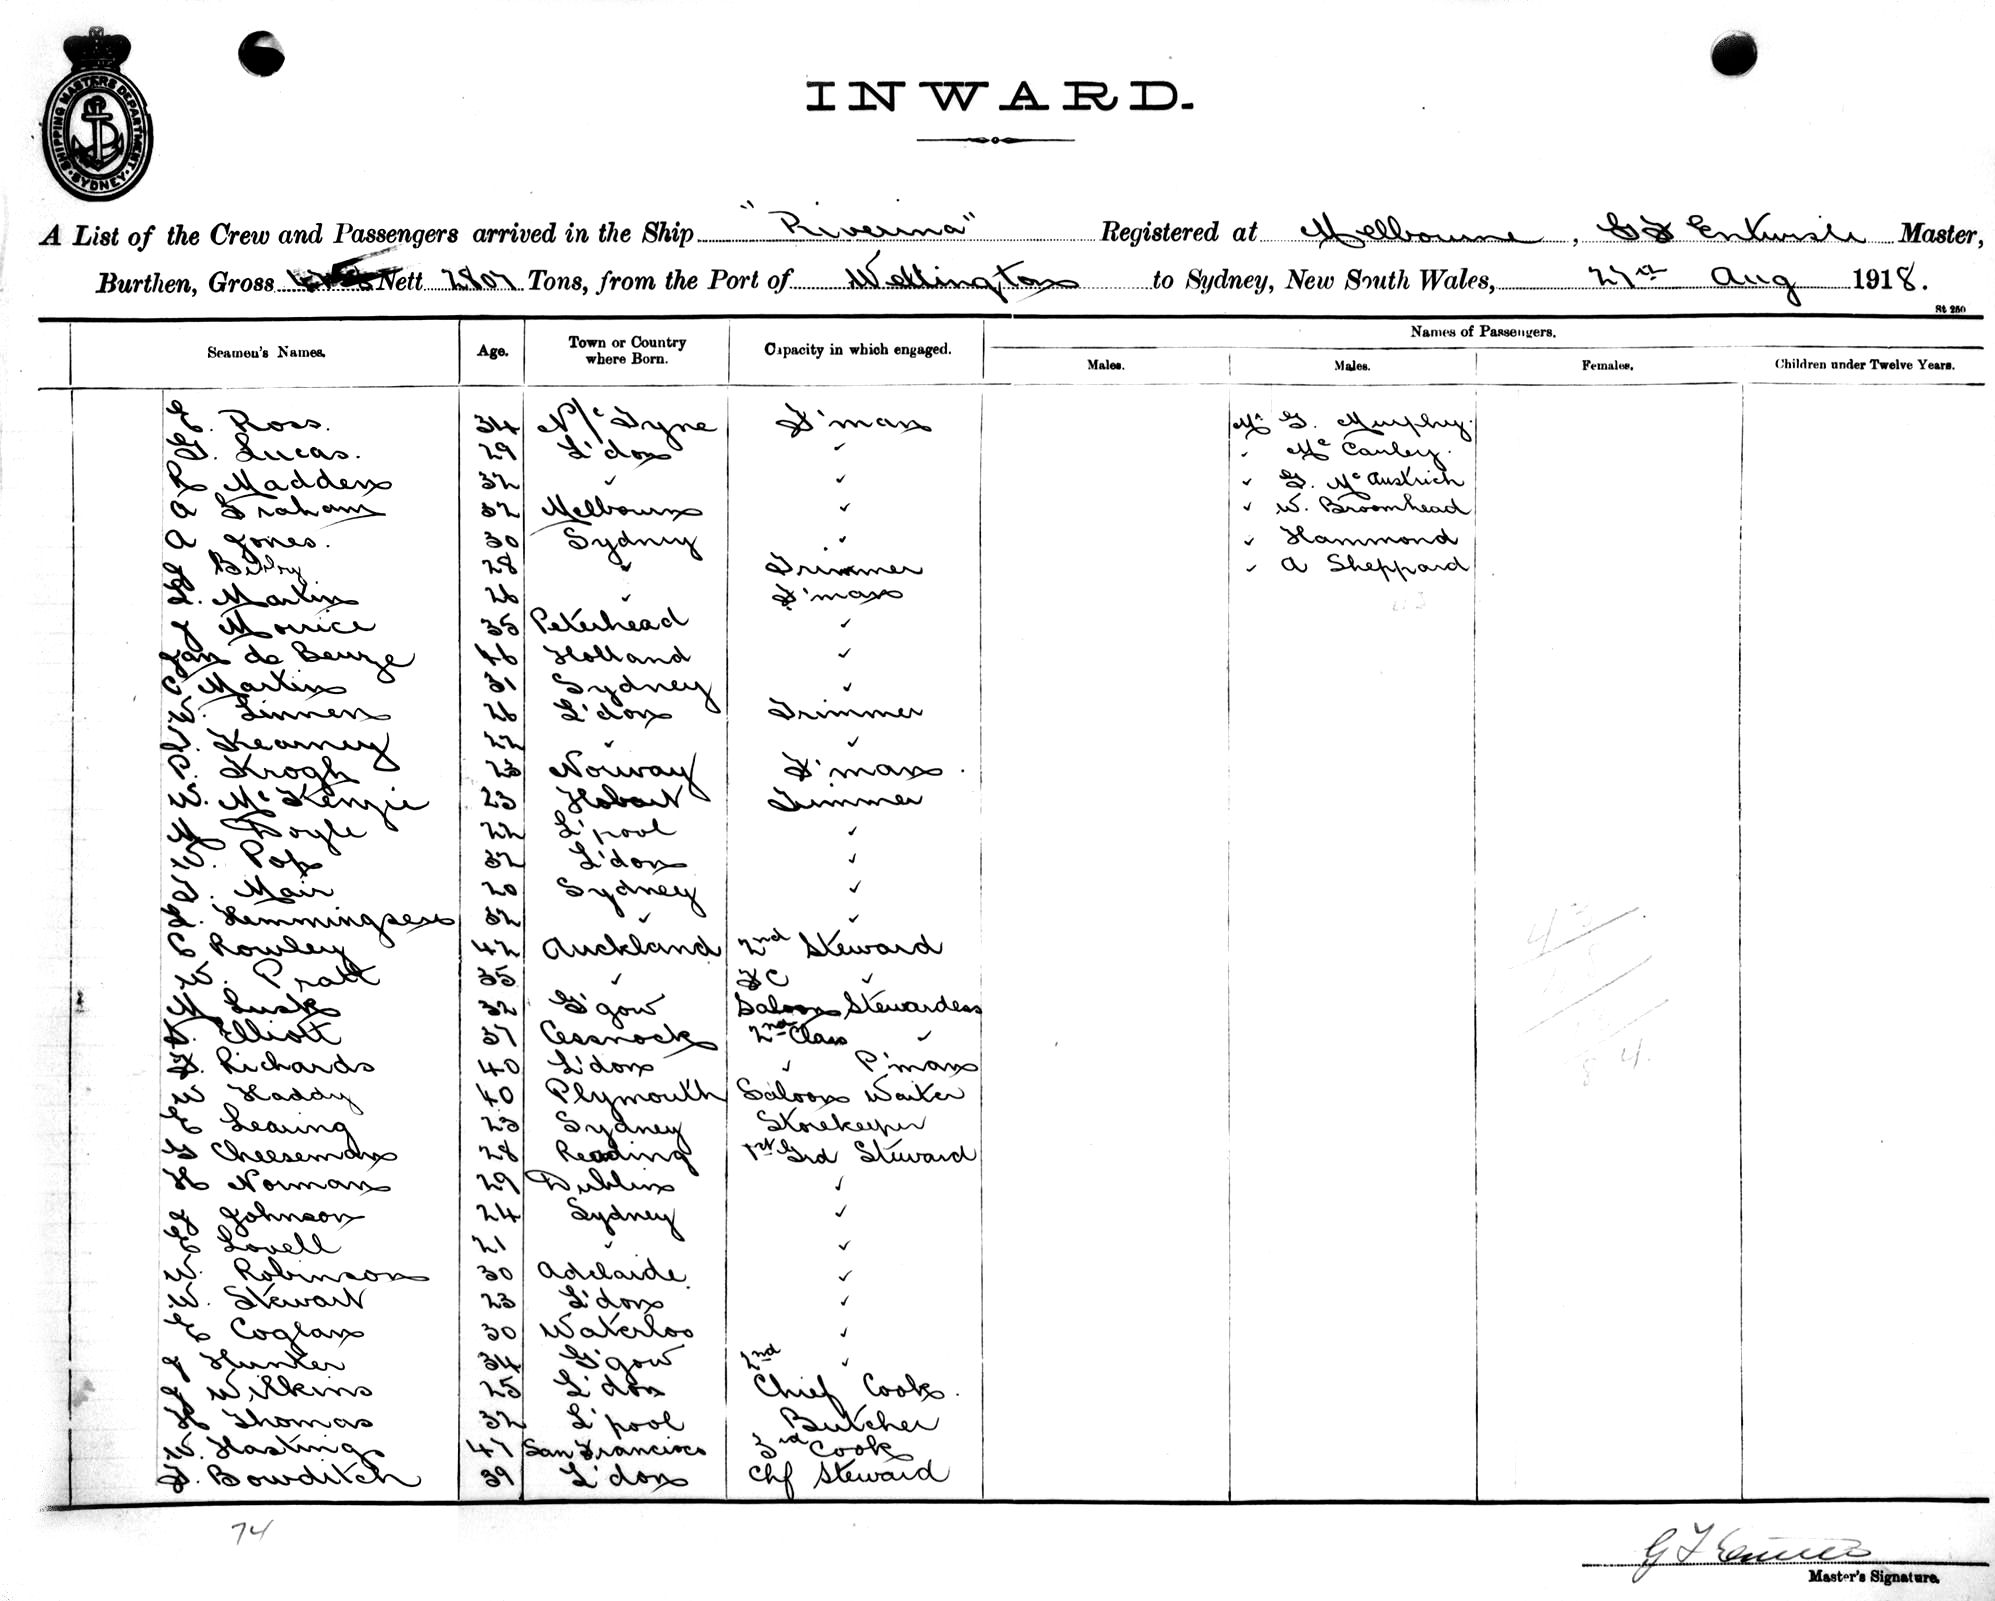 SHIPPING MASTERS DEPARTMENT SYDNEY
INWARD.
A List of the Crew and Passengers arrived in the Ship "Riverina" Registered at Melbourne, G F Entwisle Master,
Burthen, Gross Nett 2807 Tons, from the Port of Wellington to Sydney, New South Wales, 27th Aug 1918.
St 250
Seamen's Names. Age. Town or Country where Born. Capacity in which engaged. Names of Passengers.
Males. Males. Females. Children under Twelve Years.
E. Ross. 34 N/c Tyne F'man Mr G. Murphy.
G. Lucas. 29 L'don " " Mc Cauley.
R Madden 32 " " " G. McAustrich
A Graham 32 Melbourne " " W. Broomhead
A Jones. 30 Sydney " " Hammond
J Bilby 28 " Trimmer " A Sheppard
L. Martin 26 " F'man
J Morrice 35 Peterhead "
Jan de Beurze 46 Holland "
C Martin 31 Sydney "
W. Linnen 26 L'don Trimmer
T. Kearney 22 " "
P. Krogh 23 Norway F'man.
W. McKenzie 23 Hobart Trimmer
M Doyle 22 L'pool "
W. Pope 32 L'don "
T. Mair 20 Sydney "
L. Hemmingsen 32 " "
C Rowley 42 Auckland 2nd Steward
W. Pratt 35 " FC "
M Lusk 32 G'gow Saloon Stewardess
Elliott 37 Cessnock 2nd Class "
F. Richards 40 L'don " P'man
W Haddy 40 Plymouth Saloon Waiter
E Leaing 23 Sydney Storekeeper
G Cheeseman 28 Reading 1st Grd Steward
H Norman 29 Dublin "
J Johnson 24 Sydney "
E Lovell 21 " "
W. Robinson 30 Adelaide "
W. Stewart 23 L'don "
E Coglan 30 Waterloo "
J Hunter 34 G'gow 2nd "
J Wilkins 25 L'don Chief Cook.
H Thomas 32 L'pool Butcher
W. Hastings 47 San Francisco 3rd Cook
F. Bowditch 39 L'don Chf Steward
74
Master's Signature.